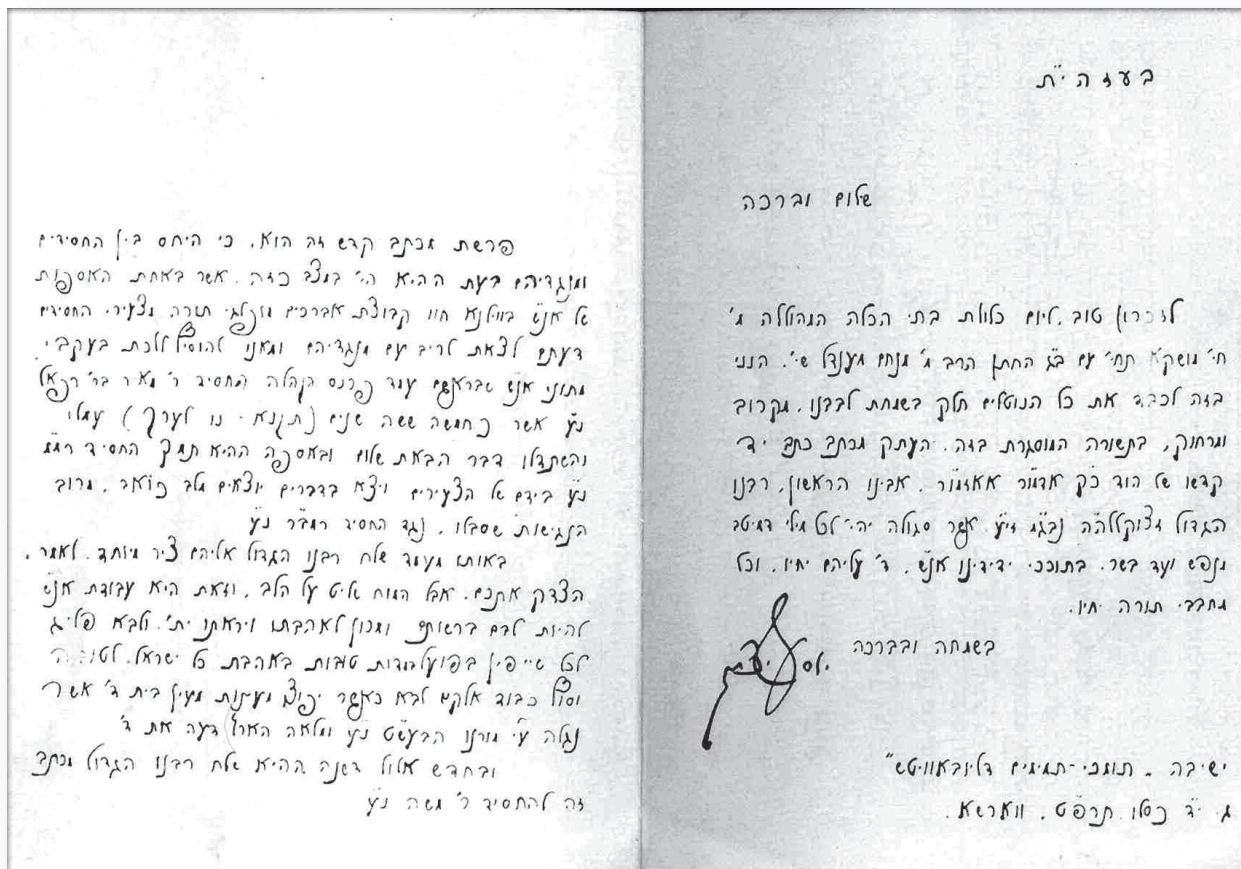 בעזהי"ת
שלום וברכה
לזכרון טוב, ליום כלולת בתי הכלה המהוללה מ'
חי' מושקא תחי' עם ב"ג החתן הרב מ' מנחם מענדל שי', הנני
בזה לכבד את כל הנוטלים חלק בשמחת לבבנו, מקרוב
ומרחוק, בתשורה המוסגרת בזה, העתק מכתב כתב יד
קדשו של הוד כ"ק אדמו"ר אאזמו"ר, אבינו הראשון, רבנו
הגדול זצוקללה"ה נבג"מ זי"ע, אשר סגולה יהי' לכל מילי דמיטב
מנפש ועד בשר, בתוככי ידידינו אנ"ש, ד' עליהם יחיו, וכל
מחבבי תורה יחיו.
בשמחה ובברכה
ישיבה "תומכי-תמימים דליובאוויטש"
ג' י"ד כסלו תרפ"ט, ווארשא.
פרשת מכתב קדש זה הוא, כי היחס בין החסידים
ומנגדיהם בעת ההיא הי' במצב כזה, אשר באחת האספות
של אנ"ש בווילנא חוו קבוצת אברכים מופלגי תורה מצעירי החסידים
דעתם לצאת לריב עם מנגדיהם ומאנו להוסיף ללכת בעקבי
מתוני אנ"ש שבראשם עמד פרנס הקהלה החסיד ר' מאיר בר' רפאל
נ"ע אשר כחמשה ששה שנים (תקנ"א - נו לערך) עמלו
והשתדלו דבר הבאת שלום ובאספה ההיא תמך החסיד רמ"מ
נ"ע בידם של הצעירים ויצא בדברים יוצאים מלב כואב, מרוב
הנגישות שסבלו, נגד החסיד רמב"ר נ"ע
באותו מעמד שלח רבנו הגדול אליהם ציר מיוחד, לאמר,
הצדק אתכם, אבל המוח שליט על הלב, וזאת היא עבודת אנ"ש
להיות לבם ברשותם ומכוון לאהבתו ויראתו ית', ולבא פליג
לכל שייפין בפועל במדות טובות באהבת כל ישראל, לטובה
וסוף כבוד אלקים לבא כאשר יפוצו מעינות מעין בית ד' אשר
נגלה ע"י מורנו הבעש"ט נ"ע ומלאה הארץ דעה את ד'
ובחדש אלול דשנה ההיא שלח רבנו הגדול מכתב
זה להחסיד ר' משה נ"ע